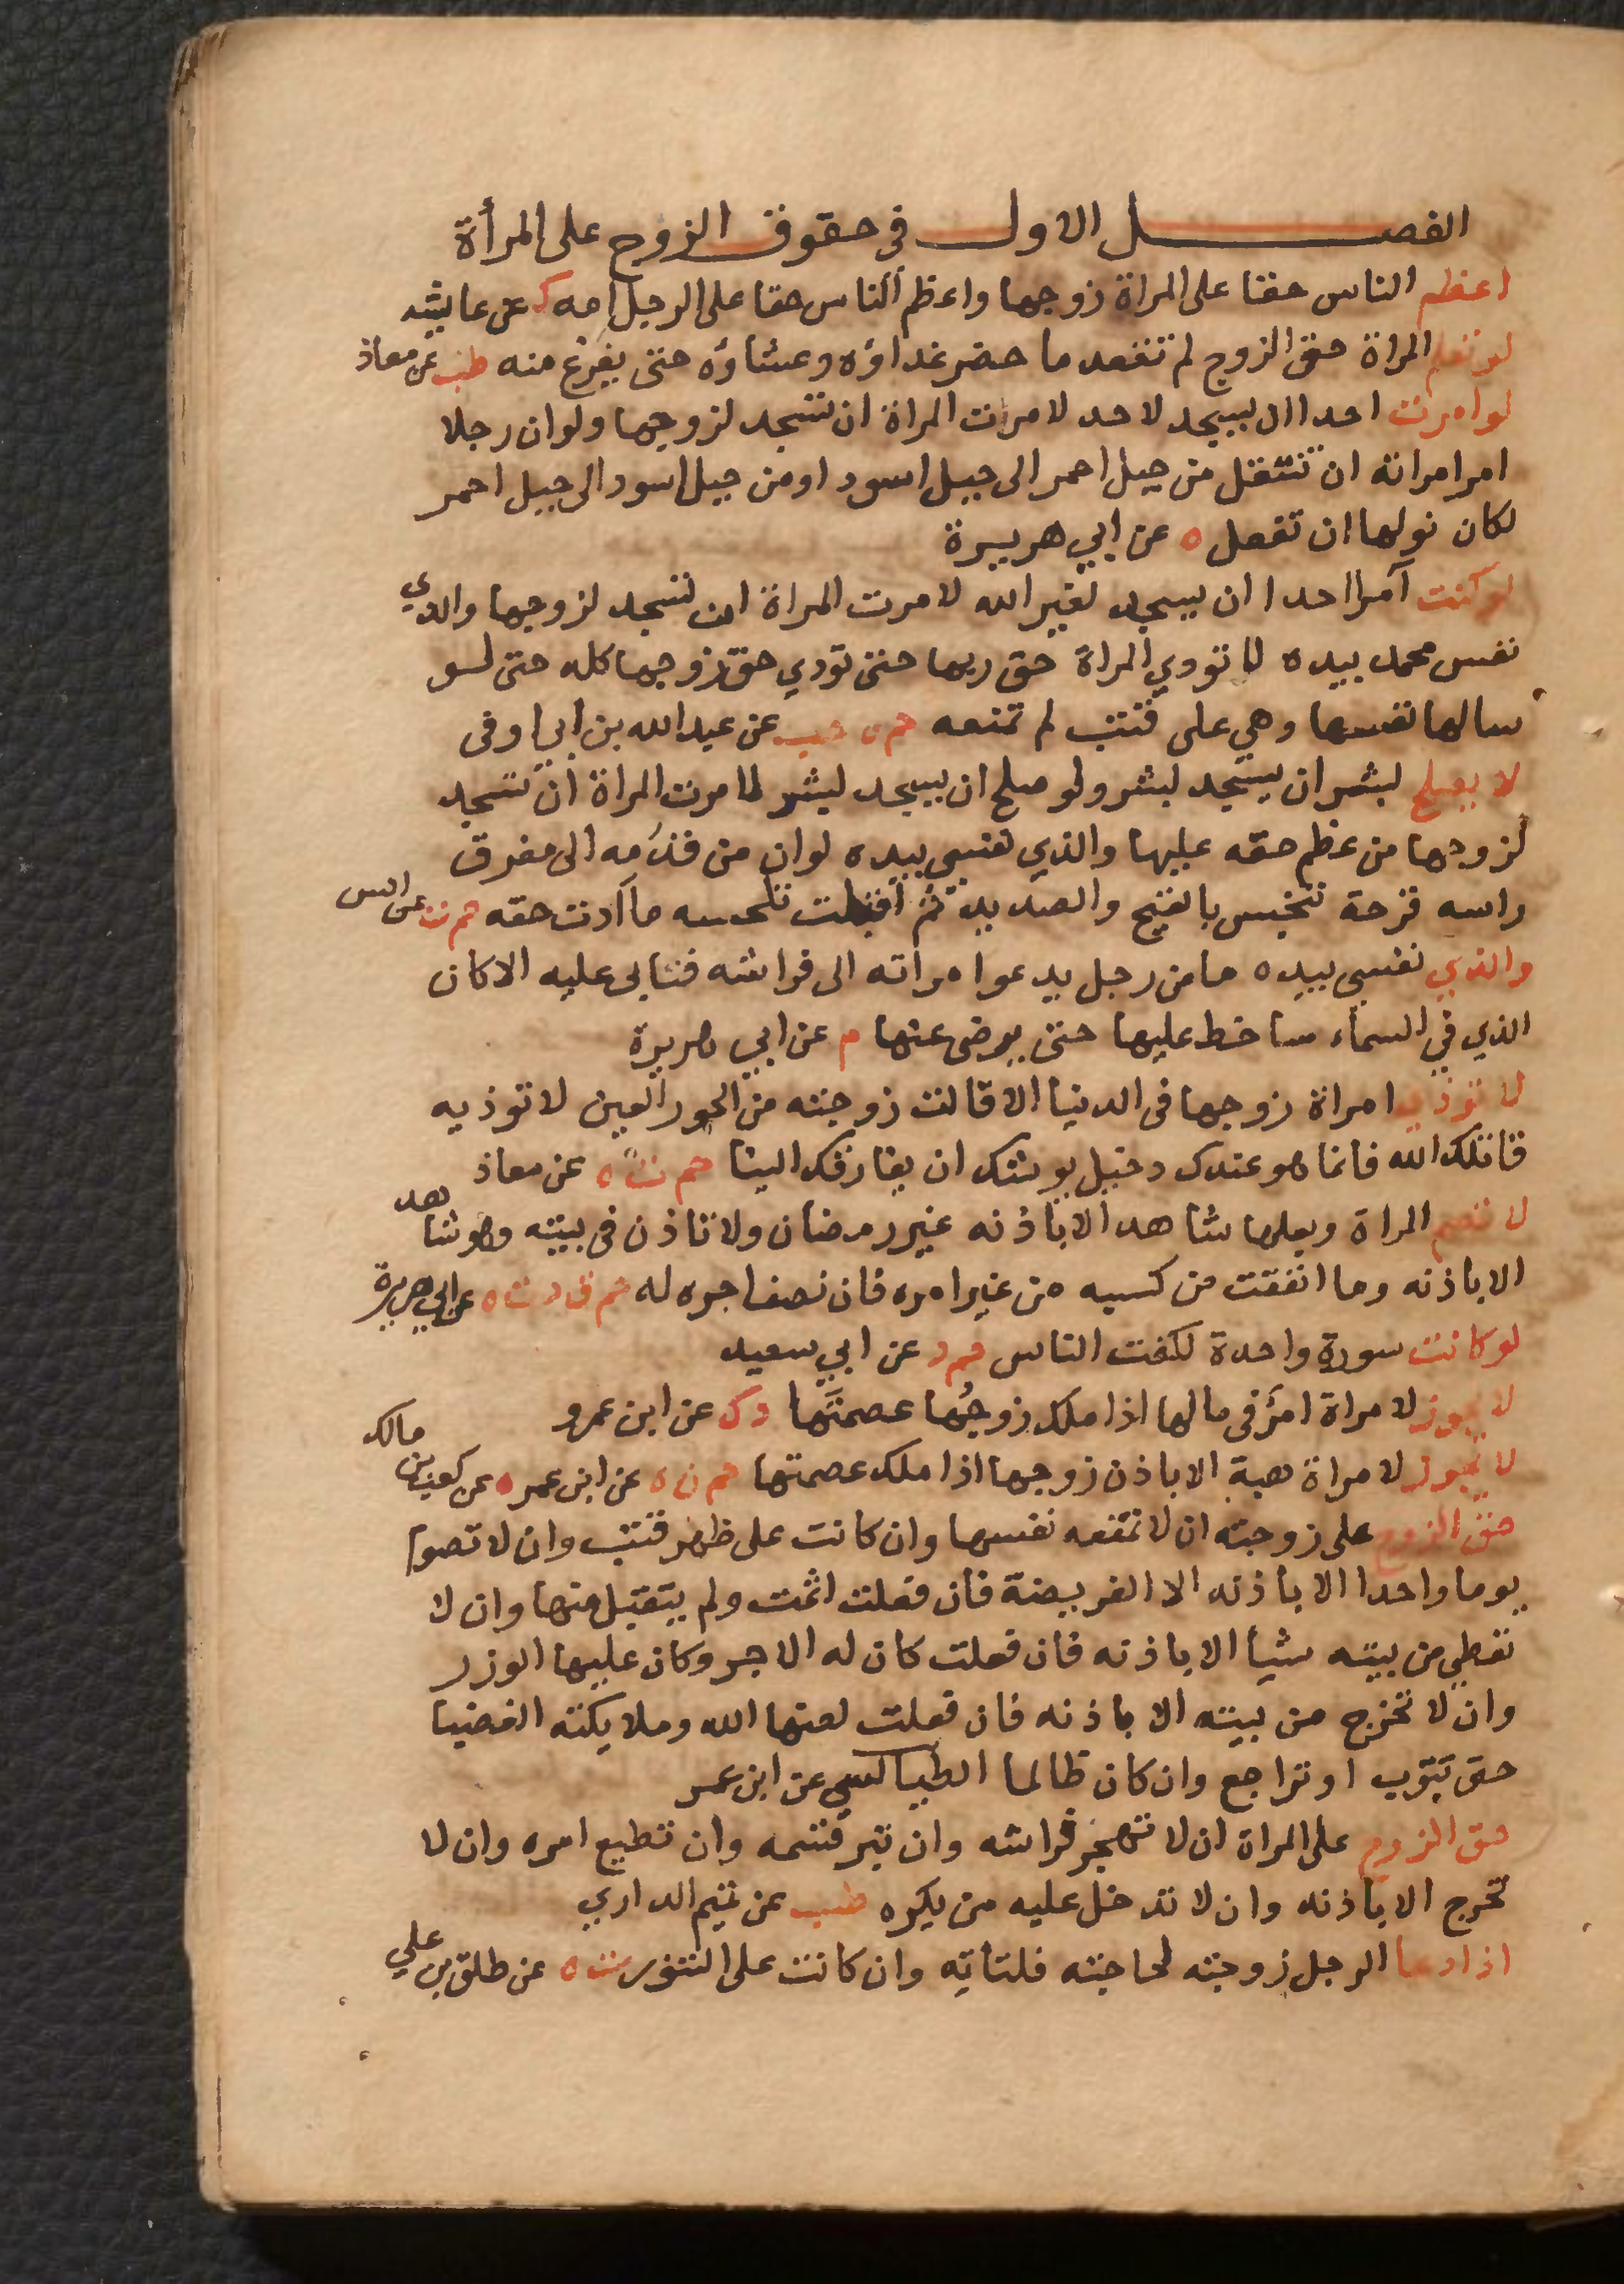 الفصل الاول في حقوق الزوج على المرأة
اعظم الناس حقا على المراة زوجها واعظم الناس حقا على الرجل امه ك عن عايشه
لو تعلم المراة حق الزوج لم تقعد ما حضر غداؤه وعشاؤه حتى يفرغ منه طب عن معاذ
لو امرت احدا ان يسجد لاحد لامرت المراة ان تسجد لزوجها ولو ان رجلا
امر امراته ان تنتقل من جبل احمر الى جبل اسود او من جبل اسود الى جبل احمر
لكان نولها ان تفعل ه عن ابي هريرة
لو كنت آمرا احدا ان يسجد لغير الله لامرت المراة ان تسجد لزوجها والذي
نفس محمد بيده لا تودي المراة حق ربها حتى تودي حق زوجها كله حتى لو
سالها نفسها وهي على قتب لم تمنعه حم ه حب عن عبد الله بن ابي اوفى
لا يصلح لبشر ان يسجد لبشر ولو صلح ان يسجد لبشر لامرت المراة ان تسجد
لزوجها من عظم حقه عليها والذي نفسي بيده لو ان من قدمه الى مفرق
راسه قرحة تنجبس بالقيح والصديد ثم اقبلت تلحسه ما ادت حقه حم ن عن انس
والذي نفسي بيده ما من رجل يدعو امراته الى فراشه فتابى عليه الا كان
الذي في السماء ساخط عليها حتى يرضى عنها م عن ابي هريرة
لا توذي امراة زوجها في الدنيا الا قالت زوجته من الحور العين لا توذيه
قاتلك الله فانما هو عندك دخيل يوشك ان يفارقك الينا حم ت ه عن معاذ
لا تصم المراة وبعلها شاهد الا باذنه غير رمضان ولا تاذن في بيته وهو شاهد
الا باذنه وما انفقت من كسبه من غير امره فان نصف اجره له حم ق د ت ه عن ابي هريرة
لو كانت سورة واحدة لكفت الناس حم د عن ابي سعيد
لا يجوز لامراة امرٌ في مالها اذا ملك زوجُها عصمتَها د ك عن ابن عمرو
لا يجوز لامراة هبة الا باذن زوجها اذا ملك عصمتها حم ن ه عن ابن عمر ه عن كعب بن مالك
حق الزوج على زوجته ان لا تمنعه نفسها وان كانت على ظهر قتب وان لا تصوم
يوما واحدا الا باذنه الا الفريضة فان فعلت اثمت ولم يتقبل منها وان لا
تعطي من بيته شيا الا باذنه فان فعلت كان له الاجر وكان عليها الوزر
وان لا تخرج من بيته الا باذنه فان فعلت لعنها الله وملايكته الغضب
حتى تتوب او تراجع وان كان ظالما الطيالسي عن ابن عمر
حق الزوج على المراة ان لا تهجر فراشه وان تبر قسمه وان تطيع امره وان لا
تخرج الا باذنه وان لا تدخل عليه من يكره طب عن تميم الداري
اذا دعا الرجل زوجته لحاجته فلتاته وان كانت على التنور ت ن عن طلق بن علي